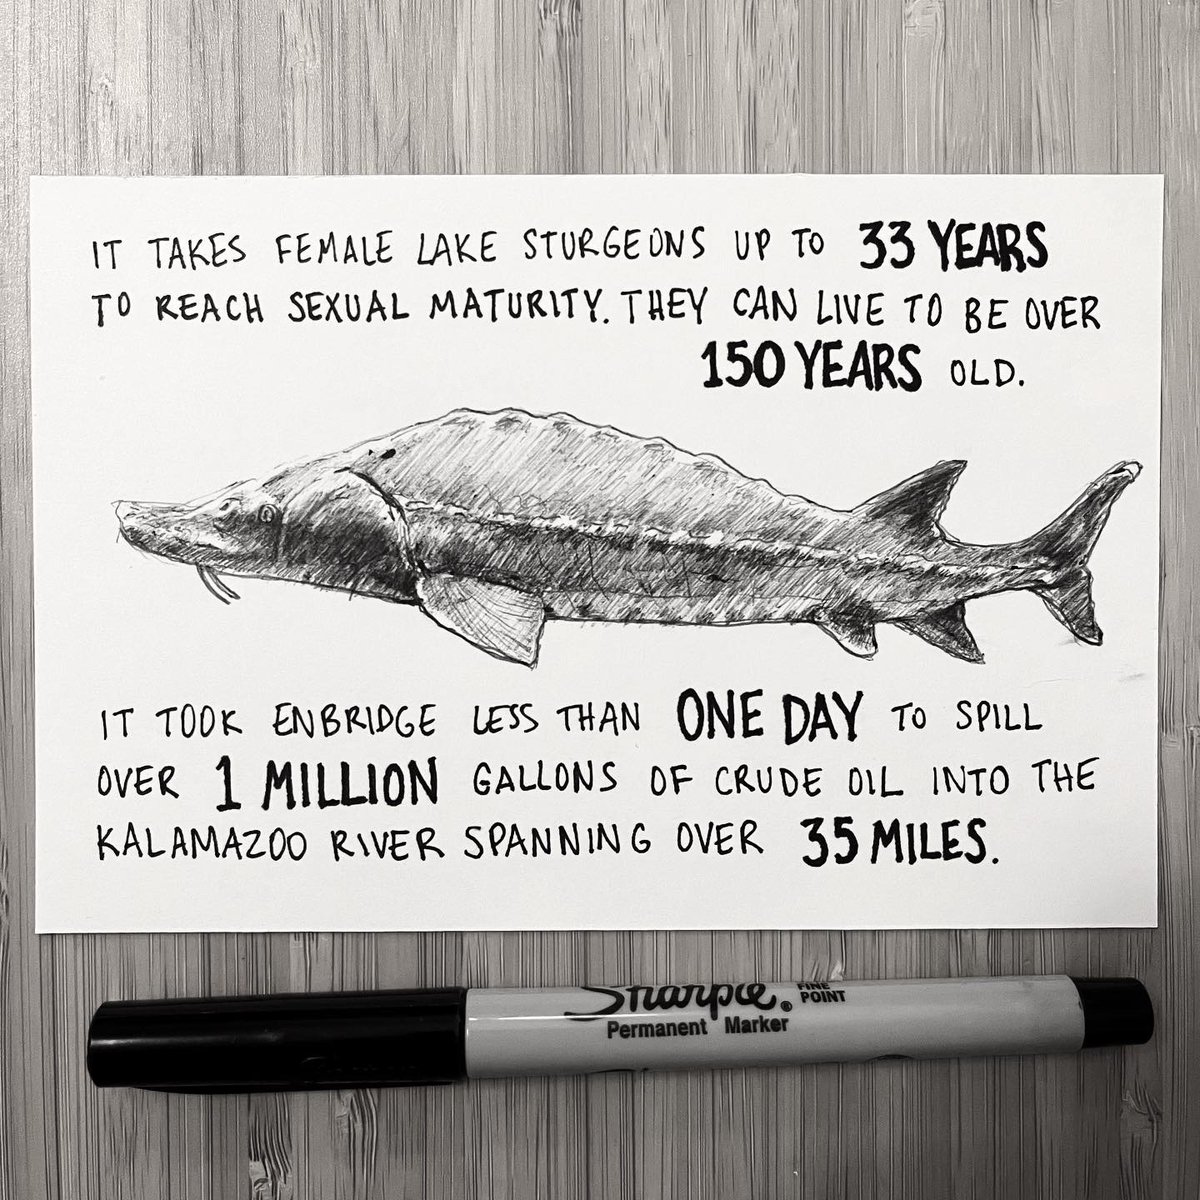 IT TAKES FEMALE LAKE STURGEONS UP TO 33 YEARS
TO REACH SEXUAL MATURITY. THEY CAN LIVE TO BE OVER
150 YEARS OLD.
IT TOOK ENBRIDGE LESS THAN ONE DAY TO SPILL
OVER 1 MILLION GALLONS OF CRUDE OIL INTO THE
KALAMAZOO RIVER SPANNING OVER 35 MILES.
Sharpie® FINE
POINT
Permanent Marker